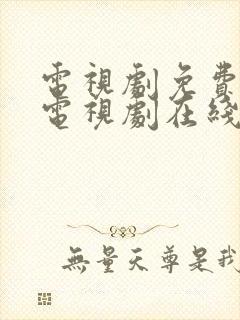 電視劇免費
電視劇在綫
無量天尊是我